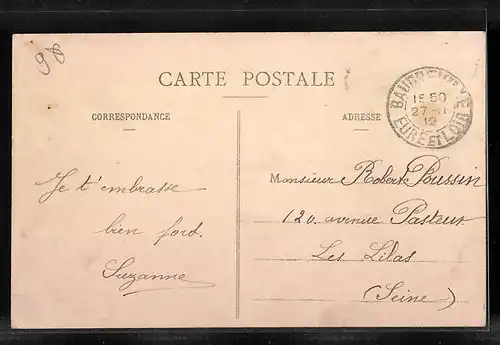 98
CARTE POSTALE
CORRESPONDANCE
ADRESSE
15 50
27 - 11
12
EURE ET LOIR
Je t'embrasse
bien fort.
Suzanne
Monsieur Robert Poussin
120. avenue Pasteur
Les Lilas
(Seine)